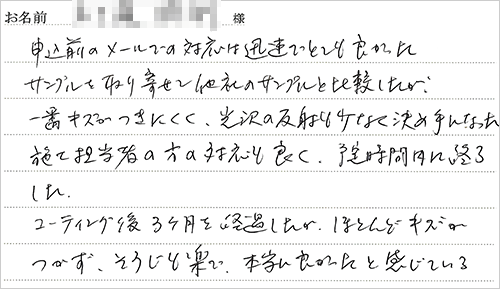 お名前 様
申込前のメールでの対応は迅速でとても良かった
サンプルを取り寄せて他社のサンプルと比較したが、
一番キズがつきにくく、光沢の反射も少なく決め手になった
施工担当者の方の対応も良く、予定時間内に終了
した。
コーティング後3ヶ月を経過したが、ほとんどキズが
つかず、そうじも楽で、本当に良かったと感じている